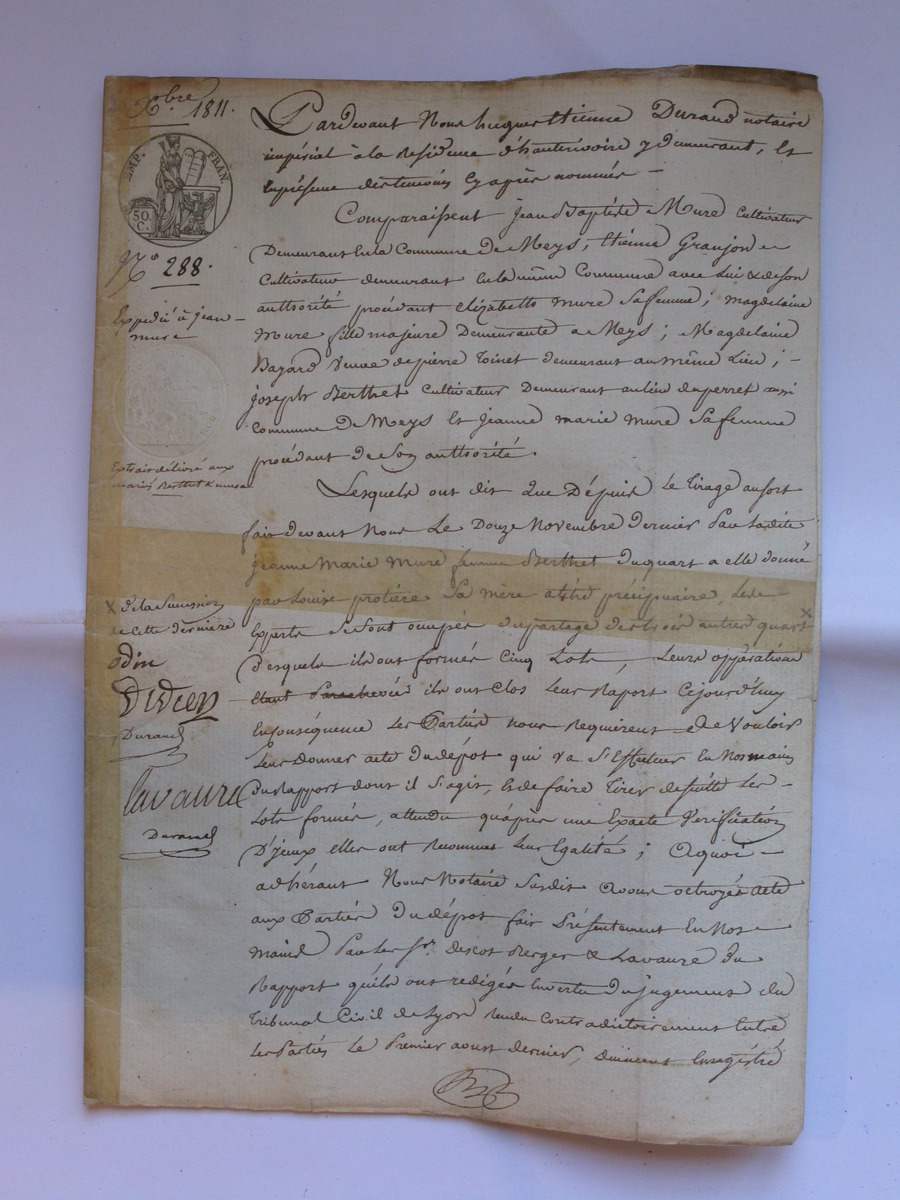 Xbre 1811.
EMP. FRAN.
50. C.
N° 288.
Expédié à jean
mure
Extrait délivré aux
mariés Berthet & mure
Pardevant Nous hugues Etienne Durand notaire
impérial à la Residence d'hauterivoire y demeurant, Et
En présence des temoins Cy après nommés —
Comparaissent Jean Baptiste Mure Cultivateur
Demeurant En la Commune De Meys, Etienne Granjon
Cultivateur demeurant En la même Commune avec Lui & de son
authorité procédant elizabeth mure Sa femme; magdelaine
Mure fille majeure Demeurante a Meys; Magdelaine
Bayard Veuve de pierre Toinet demeurant au même Lieu; —
joseph Berthet Cultivateur Demeurant au lieu du perret aussi
Commune De Meys Et jeanne marie mure Sa femme
procédant de Son authorité.
Lesquels ont dit Que Dépuis Le Tirage au sort
fait devant Nous Le Douze Novembre Dernier Par Ladite
Jeanne Marie Mure femme Berthet Du quart a elle donné
par Louise protière Sa mère a titre préciputaire, Les
Experts Se sont occupés du partage des trois autres quart X
Desquels ils ont formés Cinq Lots, Leurs opperations
étant Parachevées ils ont Clos Leur Raport Cejourd'huy
En Conséquence Les Parties nous Requirent De Vouloir
Leur Donner acte Du dépot qui Va S'Effectuer En Nos mains
Du Rapport dont il S'agit, & de faire Tirer de suitte Les
Lots formés, attendu qu'après une Exacte Verification
D'jceux elles ont Reconnues Leur Egalité; Aquoi —
adhérant Nous Notaire Susdit Avons octroyés acte
aux Parties Du dépot fait Présentement En Nos
mains Par Les Srs. descos Berger & Lavaure Du
Rapport qu'ils ont redigés En vertu Du jugement du
Tribunal Civil de Lyon Rendu Contradictoirement Entre
Les Parties Le Premier aoust dernier, Duëment Enregistré
X de la Succession
de Cette dernière
odin
Durand
Lavaure
Durand